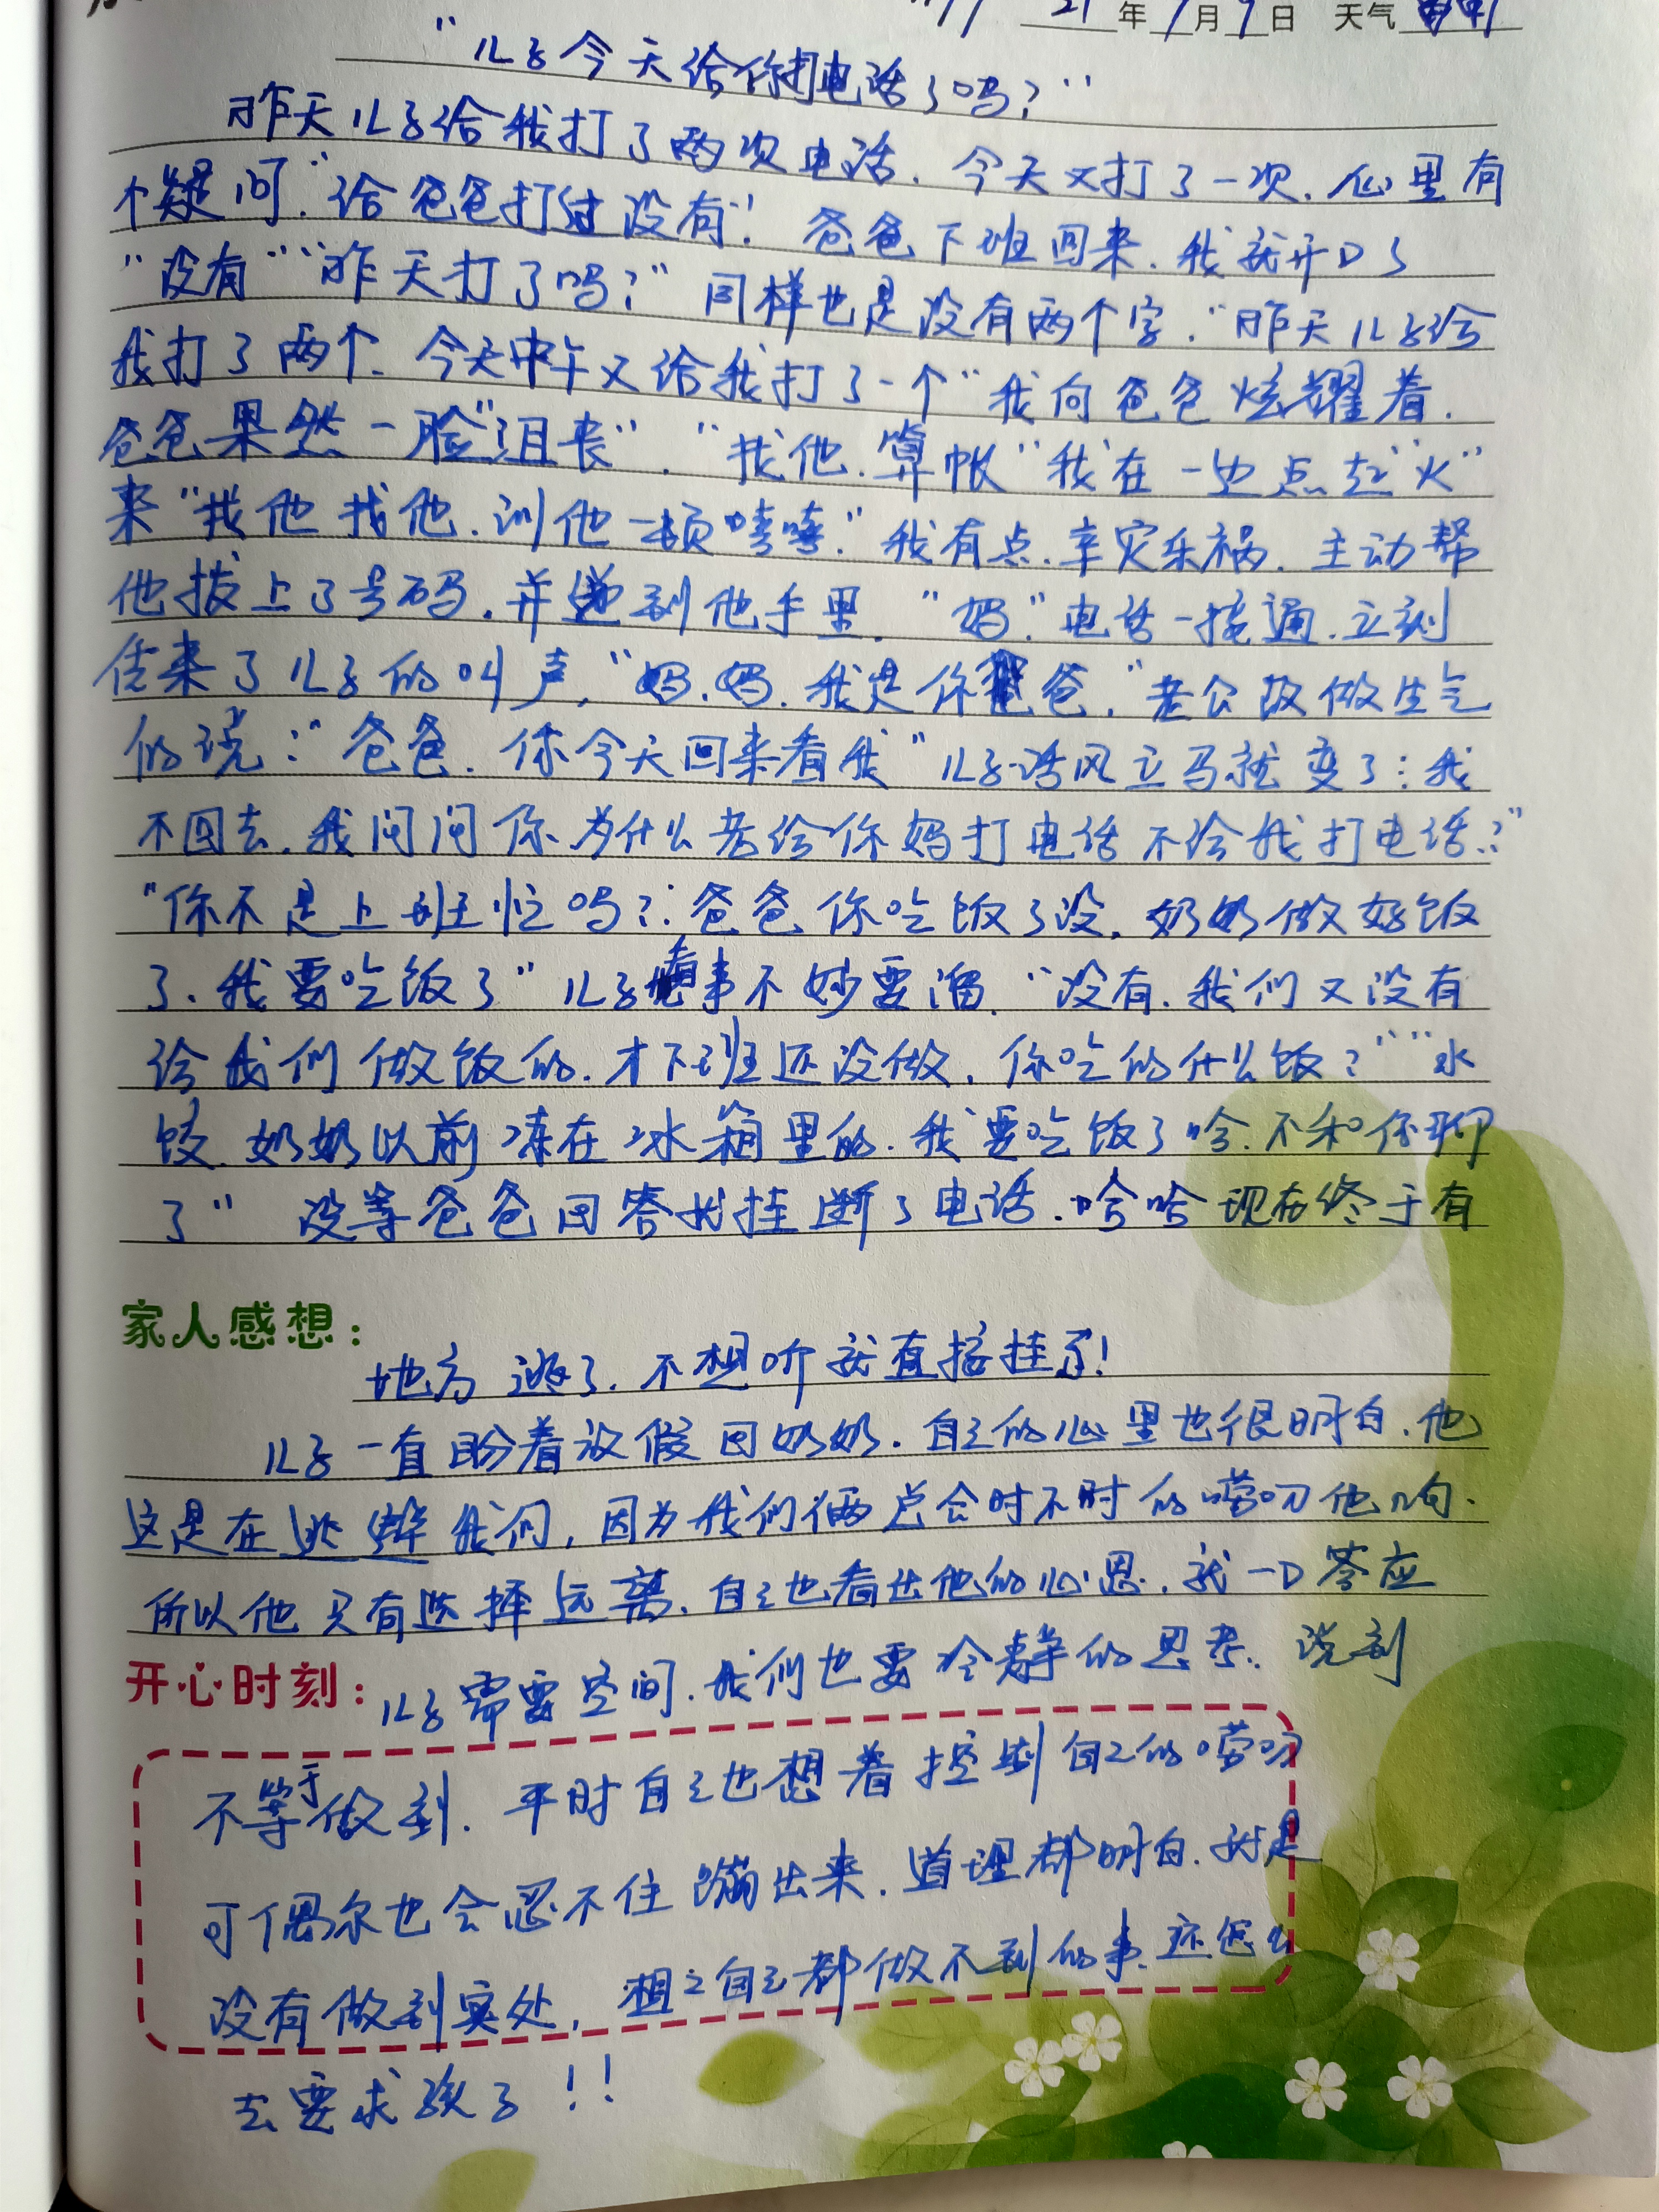 21年7月9日 天气
“儿子今天给你打电话了吗?”
昨天儿子给我打了两次电话.今天又打了一次.心里有
个疑问.“给爸爸打过没有”.爸爸下班回来.我就开口了
“没有”“昨天打了吗?”同样也是没有两个字.“昨天儿子给
我打了两个.今天中午又给我打了一个”我向爸爸炫耀着.
爸爸果然一脸“沮丧”.“找他.算帐”我在一边点起“火”
来“找他找他.训他一顿嘻嘻.”我有点.幸灾乐祸.主动帮
他拔上了号码.并递到他手里.“妈”电话一接通.立刻
传来了儿子的叫声,“妈.妈.我是你爸.”老公故做生气
的说:“爸爸.你今天回来看我”儿子话风立马就变了:我
不回去.我问问你为什么老给你妈打电话不给我打电话.?”
“你不是上班忙吗?.爸爸你吃饭了没.奶奶做好饭
了.我要吃饭了”儿子看事不妙要溜.“没有.我们又没有
给我们做饭的.才下班还没做.你吃的什么饭?”“水
饺.奶奶以前冻在冰箱里的.我要吃饭了哈.不和你聊
了”没等爸爸回答就挂断了电话.哈哈现在终于有
家人感想:
地方逃了.不想听就直接挂了!
儿子一直盼着放假回奶奶.自己的心里也很明白.他
这是在逃避我们,因为我们俩总会时不时的唠叨他.
所以他只有选择远离.自己也看出他的心思.就一口答应
开心时刻:儿子需要空间.我们也要冷静的思考.说到
不等于做到.平时自己也想着控制自己的唠叨
可偶尔也会忍不住蹦出来.道理都明白.就是
没有做到实处,想想自己都做不到的事.还怎么
去要求孩子!!